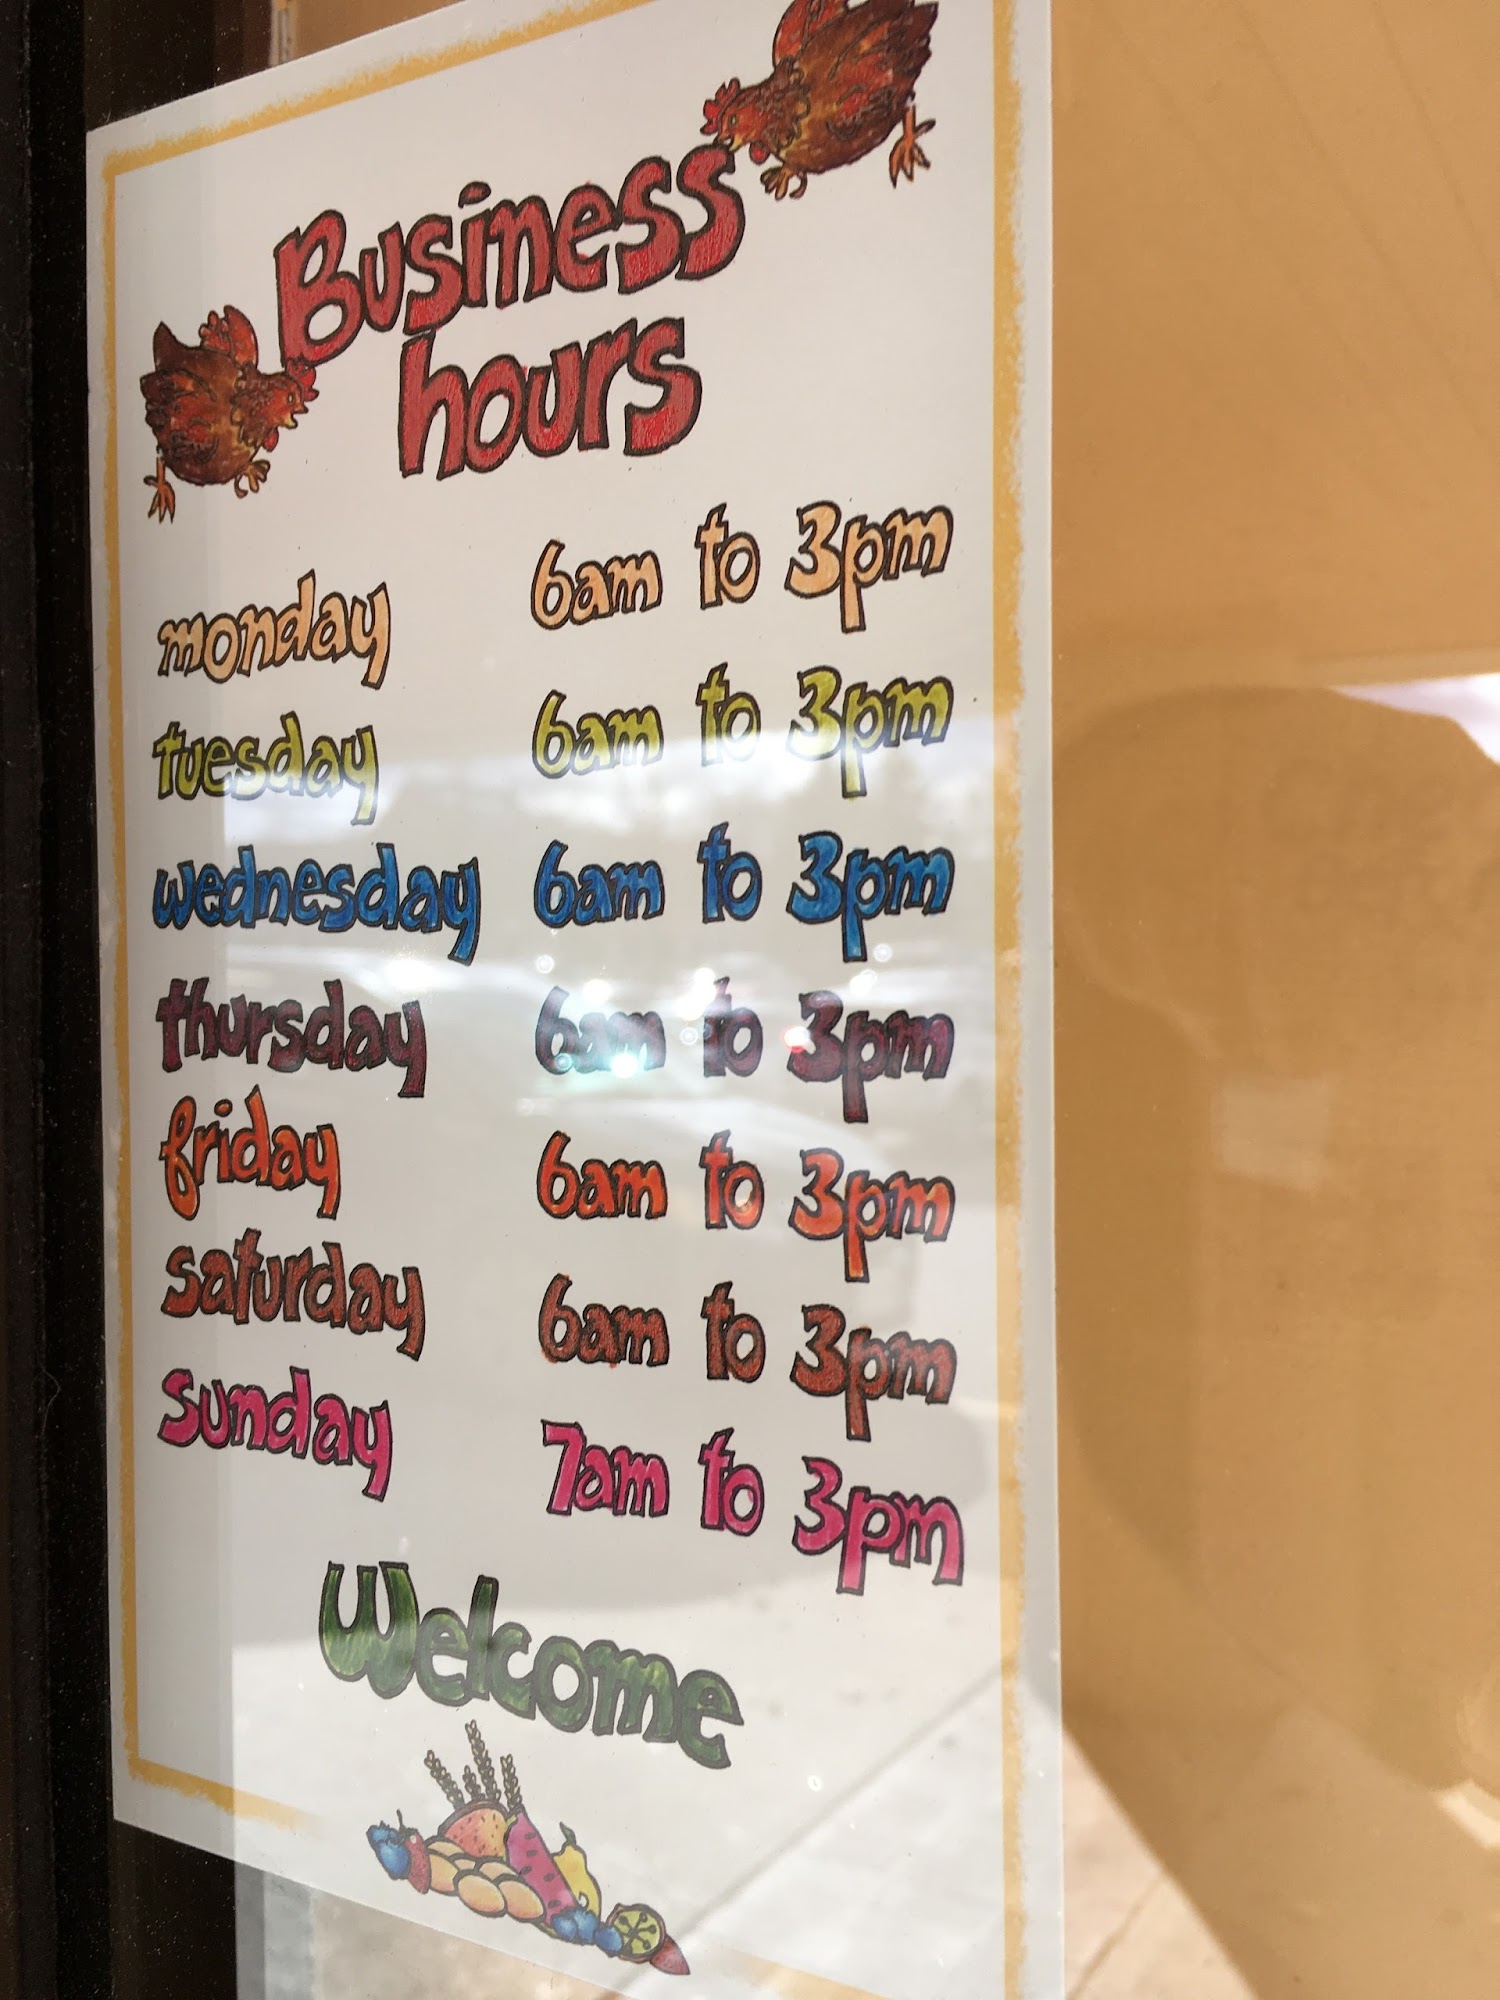 Business
hours
monday 6am to 3pm
tuesday 6am to 3pm
wednesday 6am to 3pm
thursday 6am to 3pm
friday 6am to 3pm
saturday 6am to 3pm
sunday 7am to 3pm
Welcome